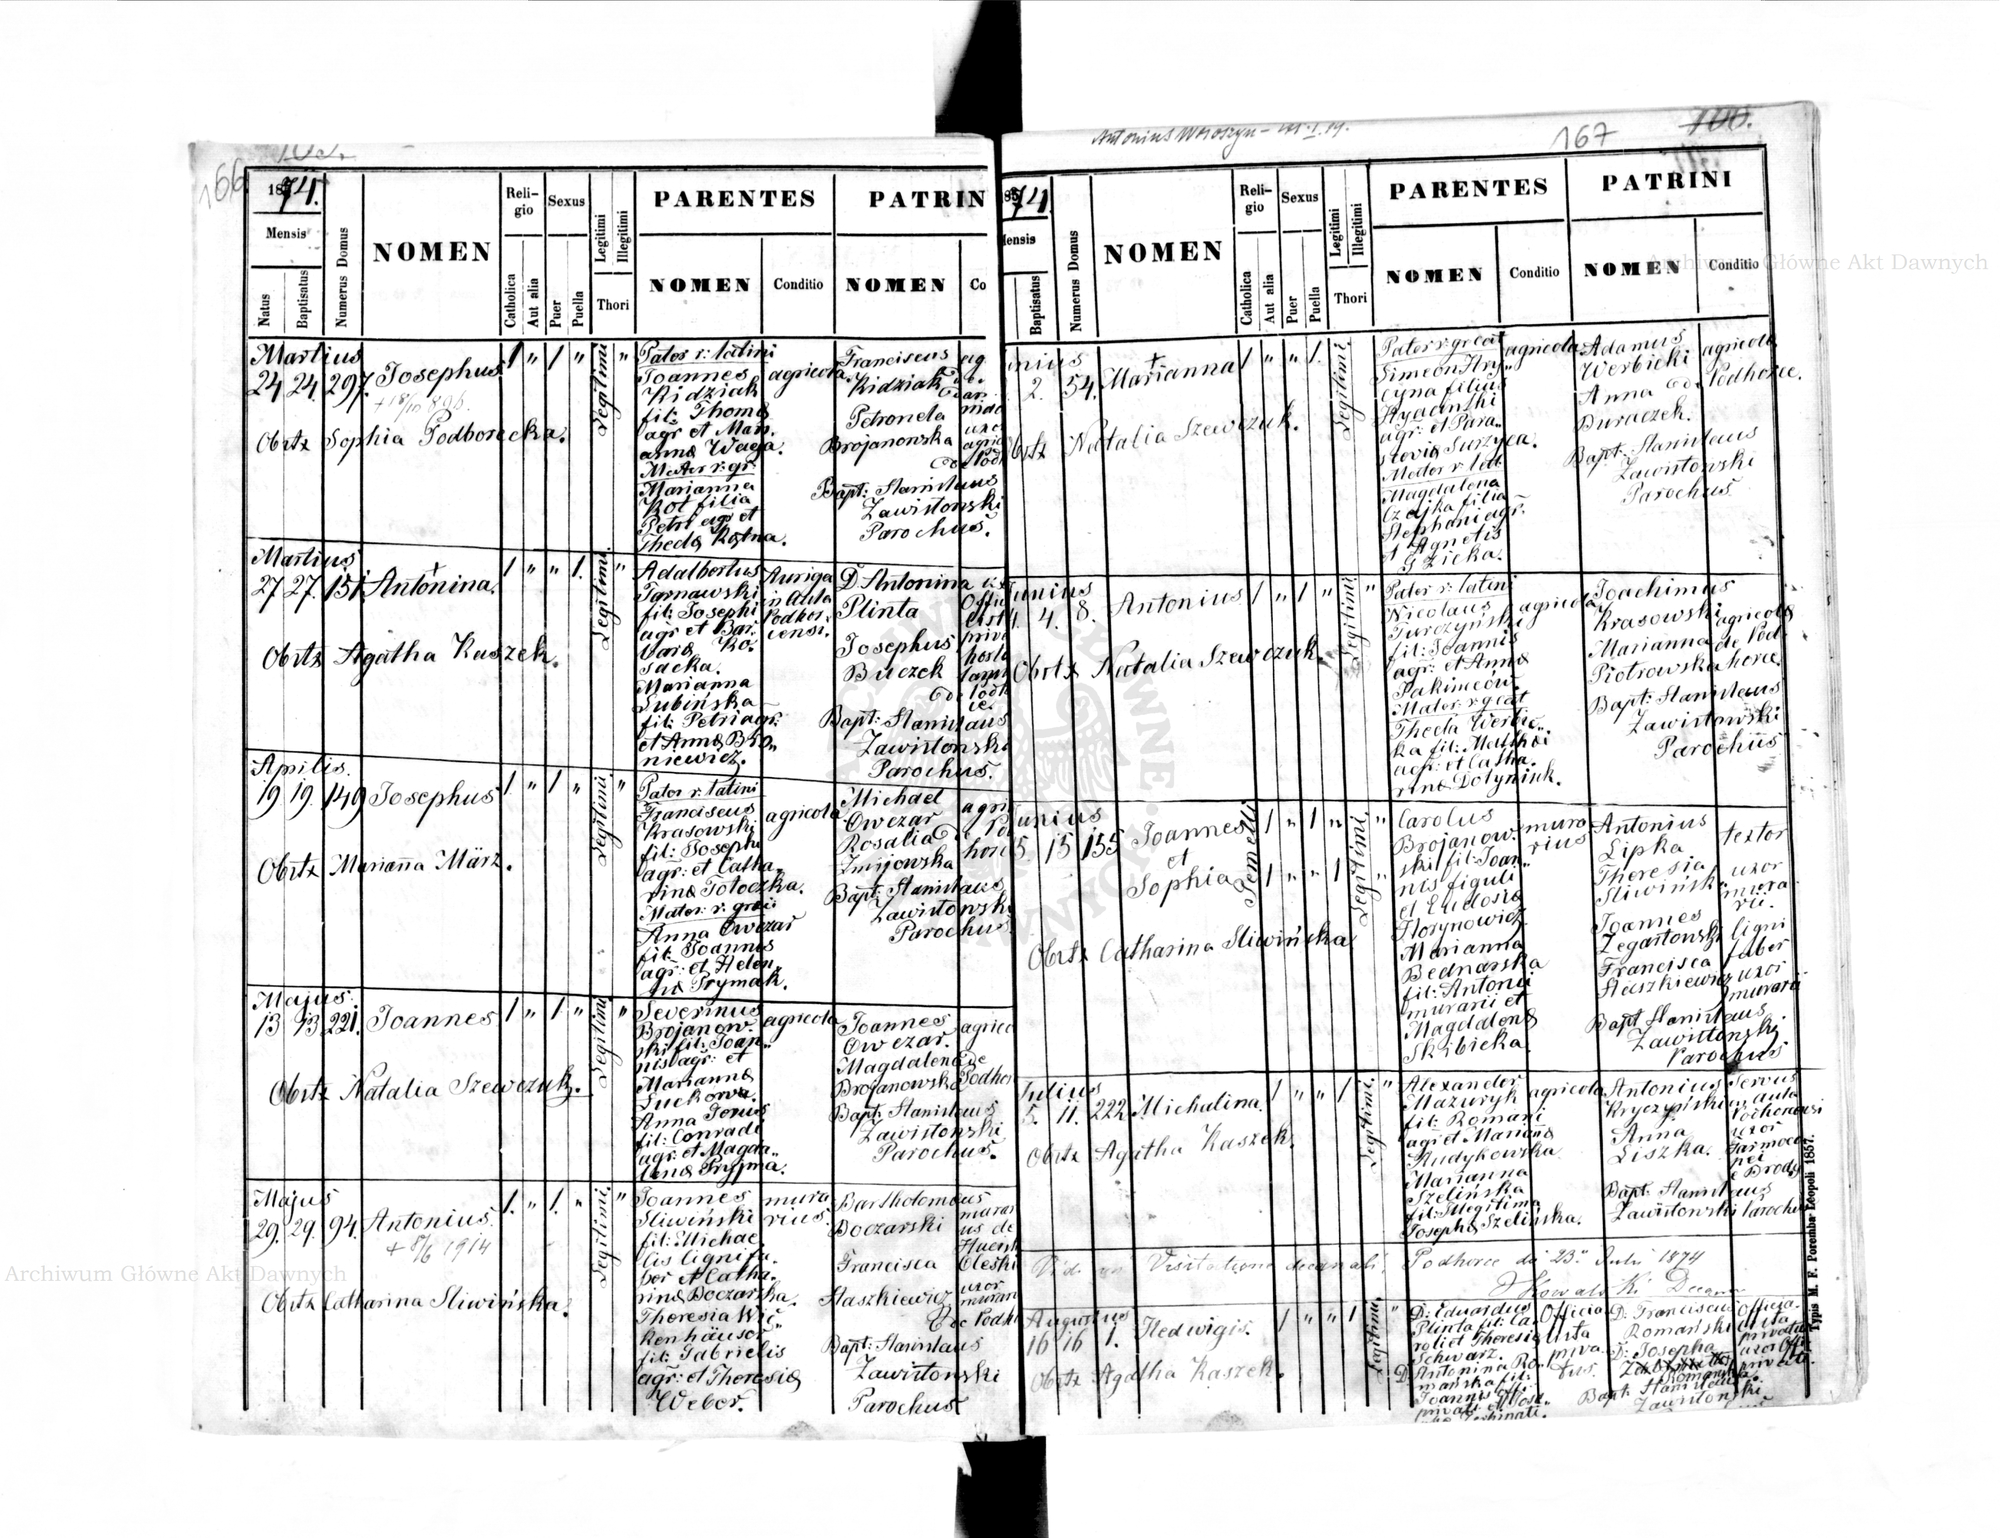 166
103.
1874.
Mensis
Natus
Baptisatus
Numerus Domus
NOMEN
Reli-
gio
Catholica
Aut alia
Sexus
Puer
Puella
Legitimi
Illegitimi
Thori
PARENTES
NOMEN
Conditio
PATRIN
NOMEN
Co
Martius
24 24. 297. Josephus 1 " 1 " Legitimi "
+ 18/10 896.
Obstx Sophia Podborecka.
Pater r: latini
Joannes
Kidziak
fil: Thomæ
agr et Mari
annæ Waga.
Mater r: gr:
Marianna
Kot filia
Petri agr et
Theclæ Kętna.
agricola
Franciscus
Kidziak
Petronela
Brojanowska
Bapt: Stanislaus
Zawistowski
Parochus.
Martius
27 27. 151 Antonina. 1 " " 1. Legitimi. "
Obstx Agatha Kaszek.
Adalbertus
Tarnawski
fil: Josephi
agr et Bar-
baræ Ko-
sacka.
Marianna
Łubińska
fil: Petri agr:
et Annæ Bro-
niewicz.
Auriga
in Aula
Podhor-
censi.
D Antonina
Plinta
Josephus
Buczek
Bapt: Stanislaus
Zawistowski
Parochus.
Aprilis.
19 19. 149 Josephus 1. " 1 " Legitimi "
Obstx Marianna März.
Pater r: latini
Franciscus
Krasowski
fil: Josephi
agr: et Catha-
rinæ Tołoczka.
Mater r: græci
Anna Owczar
fil: Joannis
agr: et Helen-
æ Prymak.
agricola
Michael
Owczar
Rosalia
Żmijowska
Bapt: Stanislaus
Zawistowski
Parochus.
Majus.
13 13 221. Joannes 1 " 1. " Legitimi "
Obstx Natalia Szewczuk.
Severinus
Brojanow-
ski fil: Joan-
nis agr: et
Mariannæ
Suchorwa.
Anna Jonus
fil: Conradi
agr: et Magda-
lenæ Pryjma.
agricola
Joannes
Owczar.
Magdalena
Brojanowska
Bapt: Stanislaus
Zawistowski
Parochus.
Majus
29. 29. 94. Antonius. 1. " 1. " Legitimi. "
+ 8/6 1914
Obstx Catharina Sliwińska.
Joannes
Sliwiński
fil: Michae-
lis ligni fa-
ber et Catha-
rinæ Boczarska.
Theresia Wic-
kenhäuser
fil: Gabrielis
agr: et Theresiæ
Weber.
mura
rius.
Bartholomeus
Boczarski
Francisca
Staszkiewicz
Bapt: Stanislaus
Zawistowski
Parochus
Antonius Woroszyn - ur. I. 14.
167
166.
1874.
Mensis
Baptisatus
Numerus Domus
NOMEN
Reli-
gio
Catholica
Aut alia
Sexus
Puer
Puella
Legitimi
Illegitimi
Thori
PARENTES
NOMEN
Conditio
PATRINI
NOMEN
Conditio
Junius
2. 54. Marianna 1 " " 1. Legitimi
Obstx Natalia Szewczuk.
Pater r: græci
Simeon Hry-
cyna filius
Hyacinthi
agr: et Para-
scevia Surzyca.
Mater r: lat:
Magdalena
Czajka filia
Stephani agr:
et Agnetis
Gzicka.
agricola
Adamus
Werbicki
Anna
Buraczek.
Bapt: Stanislaus
Zawistowski
Parochus
agricolæ
Podhorce.
Junius
4. 4. 8. Antonius 1 " 1 " Legitimi "
Obstx Natalia Szewczuk.
Pater r: latini
Nicolaus
Turczyński
fil: Joannis
agr: et Annæ
Pakimców.
Mater r græci
Thecla Werbic-
ka fil: Matthæi
agr: et Catha-
rinæ Dotyniuk.
agricola
Joachimus
Krasowski
Marianna
Piotrowska
Bapt: Stanislaus
Zawistowski
Parochus
agricolæ
de Pod-
horce.
Junius
5. 15 155 Joannes 1 " 1 " Legitimi. "
et
Sophia 1 " " 1 "
Gemelli
Obstx Catharina Sliwińska
Carolus
Brojanow-
ski fil: Joan-
nis figuli
et Eudosiæ
Horynowicz.
Marianna
Bednarska
fil: Antonii
murarii et
Magdalenæ
Skibicka.
mura
rius
Antonius
Lipka
Theresia
Sliwińska
Joannes
Zegartowski
Francisca
Staszkiewicz
Bapt Stanislaus
Zawistowski
Parochus
textor
uxor
mura-
rii.
ligni
faber
uxor
murarii
Julius
5. 11. 222. Michalina. 1 " " 1 Legitimi. "
Obstx Agatha Kaszek.
Alexander
Mazuryk
fil: Romani
agr et Mariannæ
Rudykowska
Marianna
Szelińska
fil: Illegitima
Josephæ Szelińska.
agricola
Antonius
Kryczyński
Anna
Liszka.
Bapt: Stanislaus
Zawistowski Parochus
Servus
in aula
uxor
e Brody
Vidi in Visitatione decanali. Podhorce die 23. Julii 1874
Kowalski Decan
Augustus
16 16 1. Hedwigis. 1 " " 1 Legitimi. "
Obstx Agatha Kaszek.
D: Eduardus
Plinta fil: Ca-
roli et Theresiæ
Schwarz.
D: Antonina Ro-
mańska fil:
Joannis Off:
privati et Jose-
Officia-
lista
priva-
tus.
D: Franciscus
Romański
D: Josepha
Romańska
Bapt: Stanislaus
Zawistowski
Officia-
lista
privatus
uxor Off:
privati.
Typis M. F. Poremba Leopoli 1857.
Archiwum Główne Akt Dawnych
Archiwum Główne Akt Dawnych
ARCHIWUM GŁÓWNE AKT DAWNYCH